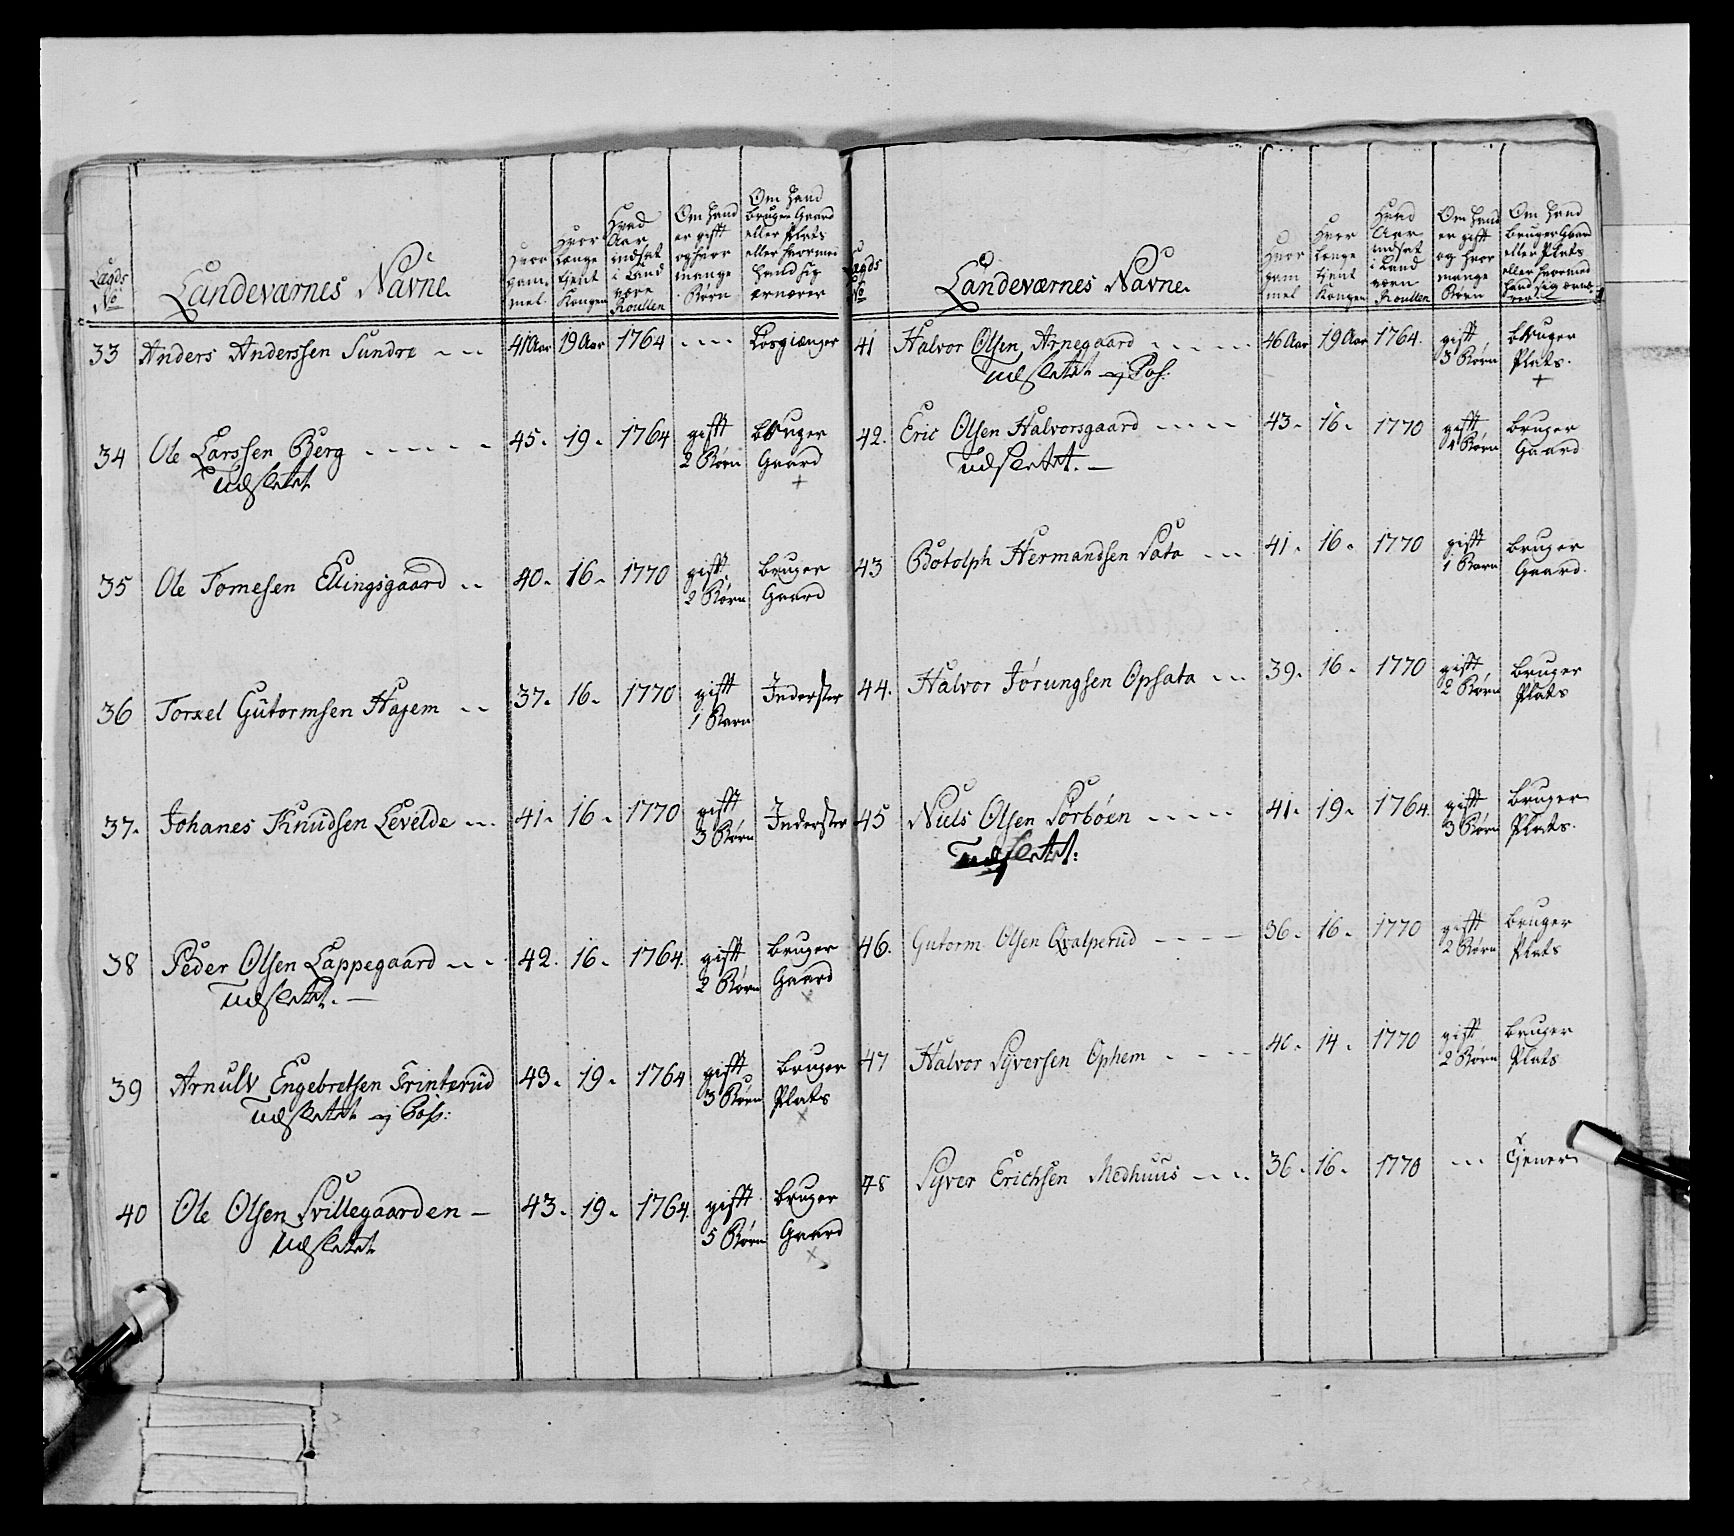 Lægds No
Landeværnes Navne.
Hvor gammel
Hvor Længe tient Kongen
Hvad Aar indsat i Land være Roullen
Om hand er gifft og hvor mange Børn
Om hand bruger Gaard eller Plats eller hvormed hand sig ernærer
33 Anders Anderssen Sundre 41 Aar 19 Aar 1764 Losgiænger
34 Ole Larssen Berg 45. 19. 1764 gifft 2 Børn bruger Gaard +
Udslettet
35 Ole Tomesen Ellingsgaard 40. 16. 1770 gifft 2 Børn bruger Gaard
36 Torkel Gutormsen Hagem 37. 16. 1770 gifft 1 Barn Inderster
37. Johanes Knudsen Levelde 41. 16. 1770 gifft 3 Børn Inderster
38 Peder Olsen Lappegaard 42. 16. 1764. gifft 2 Børn bruger Gaard x
Udslettet.
39 Arnulv Engebretsen Trinterud 43. 19. 1764 gifft 3 Børn bruger Plats x
Udslettet
40 Ole Olsen Svillegaarden 43. 19. 1764. gifft 5 Børn bruger Gaard x
Udslettet
Lægds No
Landeværnes Navne.
Hvor gammel
Hvor længe tient Kongen
Hvad Aar indsat i Land værn Roullen
Om hand er gifft og hvor mange Børn
Om hand bruger Gaard eller Plats eller hvormed hand sig ernærer
41 Halvor Olsen Arnegaard 46 Aar 19 Aar 1764. gifft 3 Børn bruger Plats. +
Udslettet
42. Eric Olsen Halvorsgaard 43. 16. 1770 gifft 4 Børn bruger Gaard
Udslettet.
43 Botolph Hermandsen Sata 41. 16. 1770 gifft 1 Barn bruger Gaard.
44. Halvor Jørungsen Opsata 39. 16. 1770 gifft 2 Børn bruger Plats
45 Niels Olsen Sørbøen 41. 19. 1764. gifft 3 Børn bruger Plats.
Udslettet:
46. Gutorm Olsen Qvalperud 36. 16. 1770 gifft 2 Børn bruger Plats
47 Halvor Syversen Ophem 40. 14. 1770 gifft 2 Børn bruger Plats
48 Syver Erichsen Medhuus 36. 16. 1770 tjener